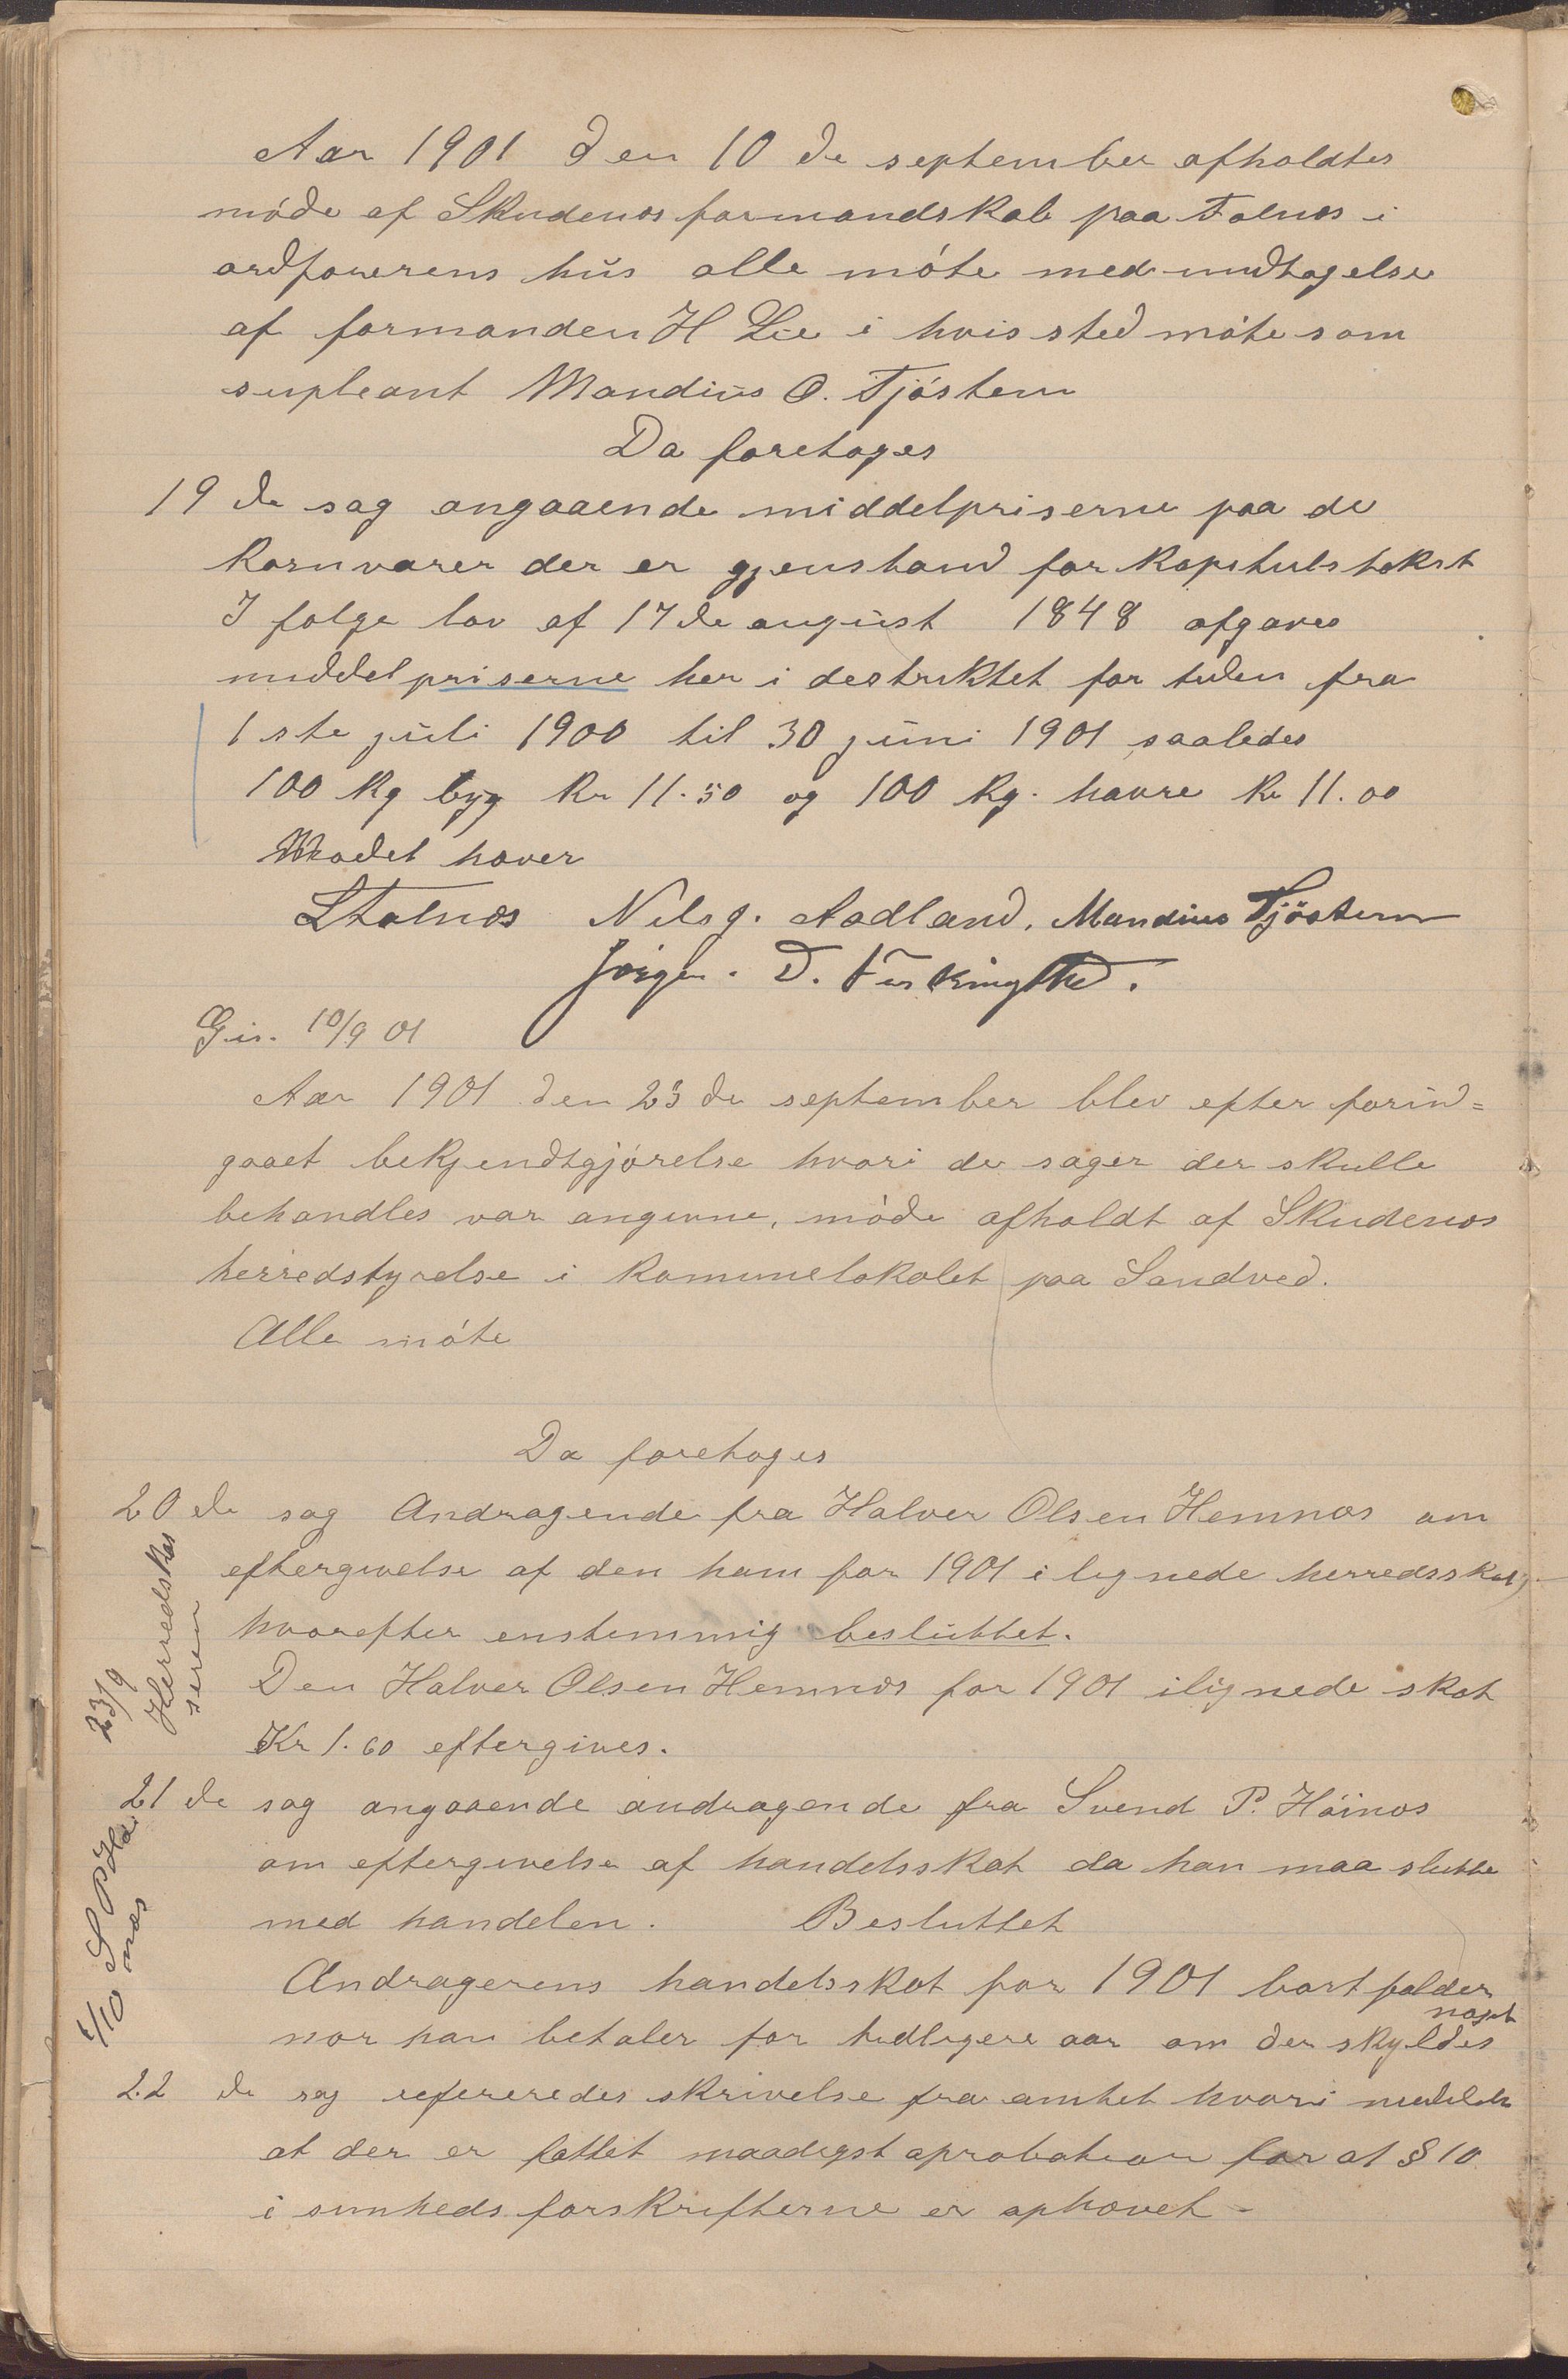 Aar 1901 den 10 de september afholdtes
møde af Skudenæs formandskab paa Falnæs i
ordførerens hus alle møte med undtagelse
af formanden H Lie i hvis sted møte som
supleant Mandius O. Tjøstem
Da foretoges
19 de sag angaaende middelpriserne paa de
kornvarer der er gjenstand for kapitulstakst
I følge lov af 17 de august 1848 afgaves
middelpriserne her i destriktet for tiden fra
1 ste juli 1900 til 30 juni 1901 saaledes
100 kg byg kr 11.50 og 100 kg. havre kr 11.00
Mødet hæver
L Falnæs Nils J. Aadland. Mandius Tjøstem
Jørgen. D.
10/9 01
Aar 1901 den 23 de september blev efter forind=
gaaet bekjendtgjørelse hvori de sager der skulle
behandles var angivne, møde afholdt af Skudenæs
herredstyrelse i kommunelokalet paa Sandved.
Alle møte
Da foretoges
20 de sag Andragende fra Halver Olsen Hemnæs om
eftergivelse af den ham for 1901 i lignede herredsskat,
hvorefter enstemmig besluttet.
Den Halver Olsen Hemnæs for 1901 ilignede skat
Kr 1.60 eftergives.
23/9 Herredskas
seren
21 de sag angaaende andragende fra Svend P. Høinæs
om eftergivelse af handelsskat da han maa slutte
med handelen. Besluttet
Andragerens handelsskat for 1901 bortfalder
nør han betaler for tidligere aar om der skyldes noget
1/10 S P Høi
næs
22 de sag refereredes skrivelse fra amtet hvori meddeles
at der er fattet naadigst aprobation for at § 10
i sunheds forskrifterne er ophævet -